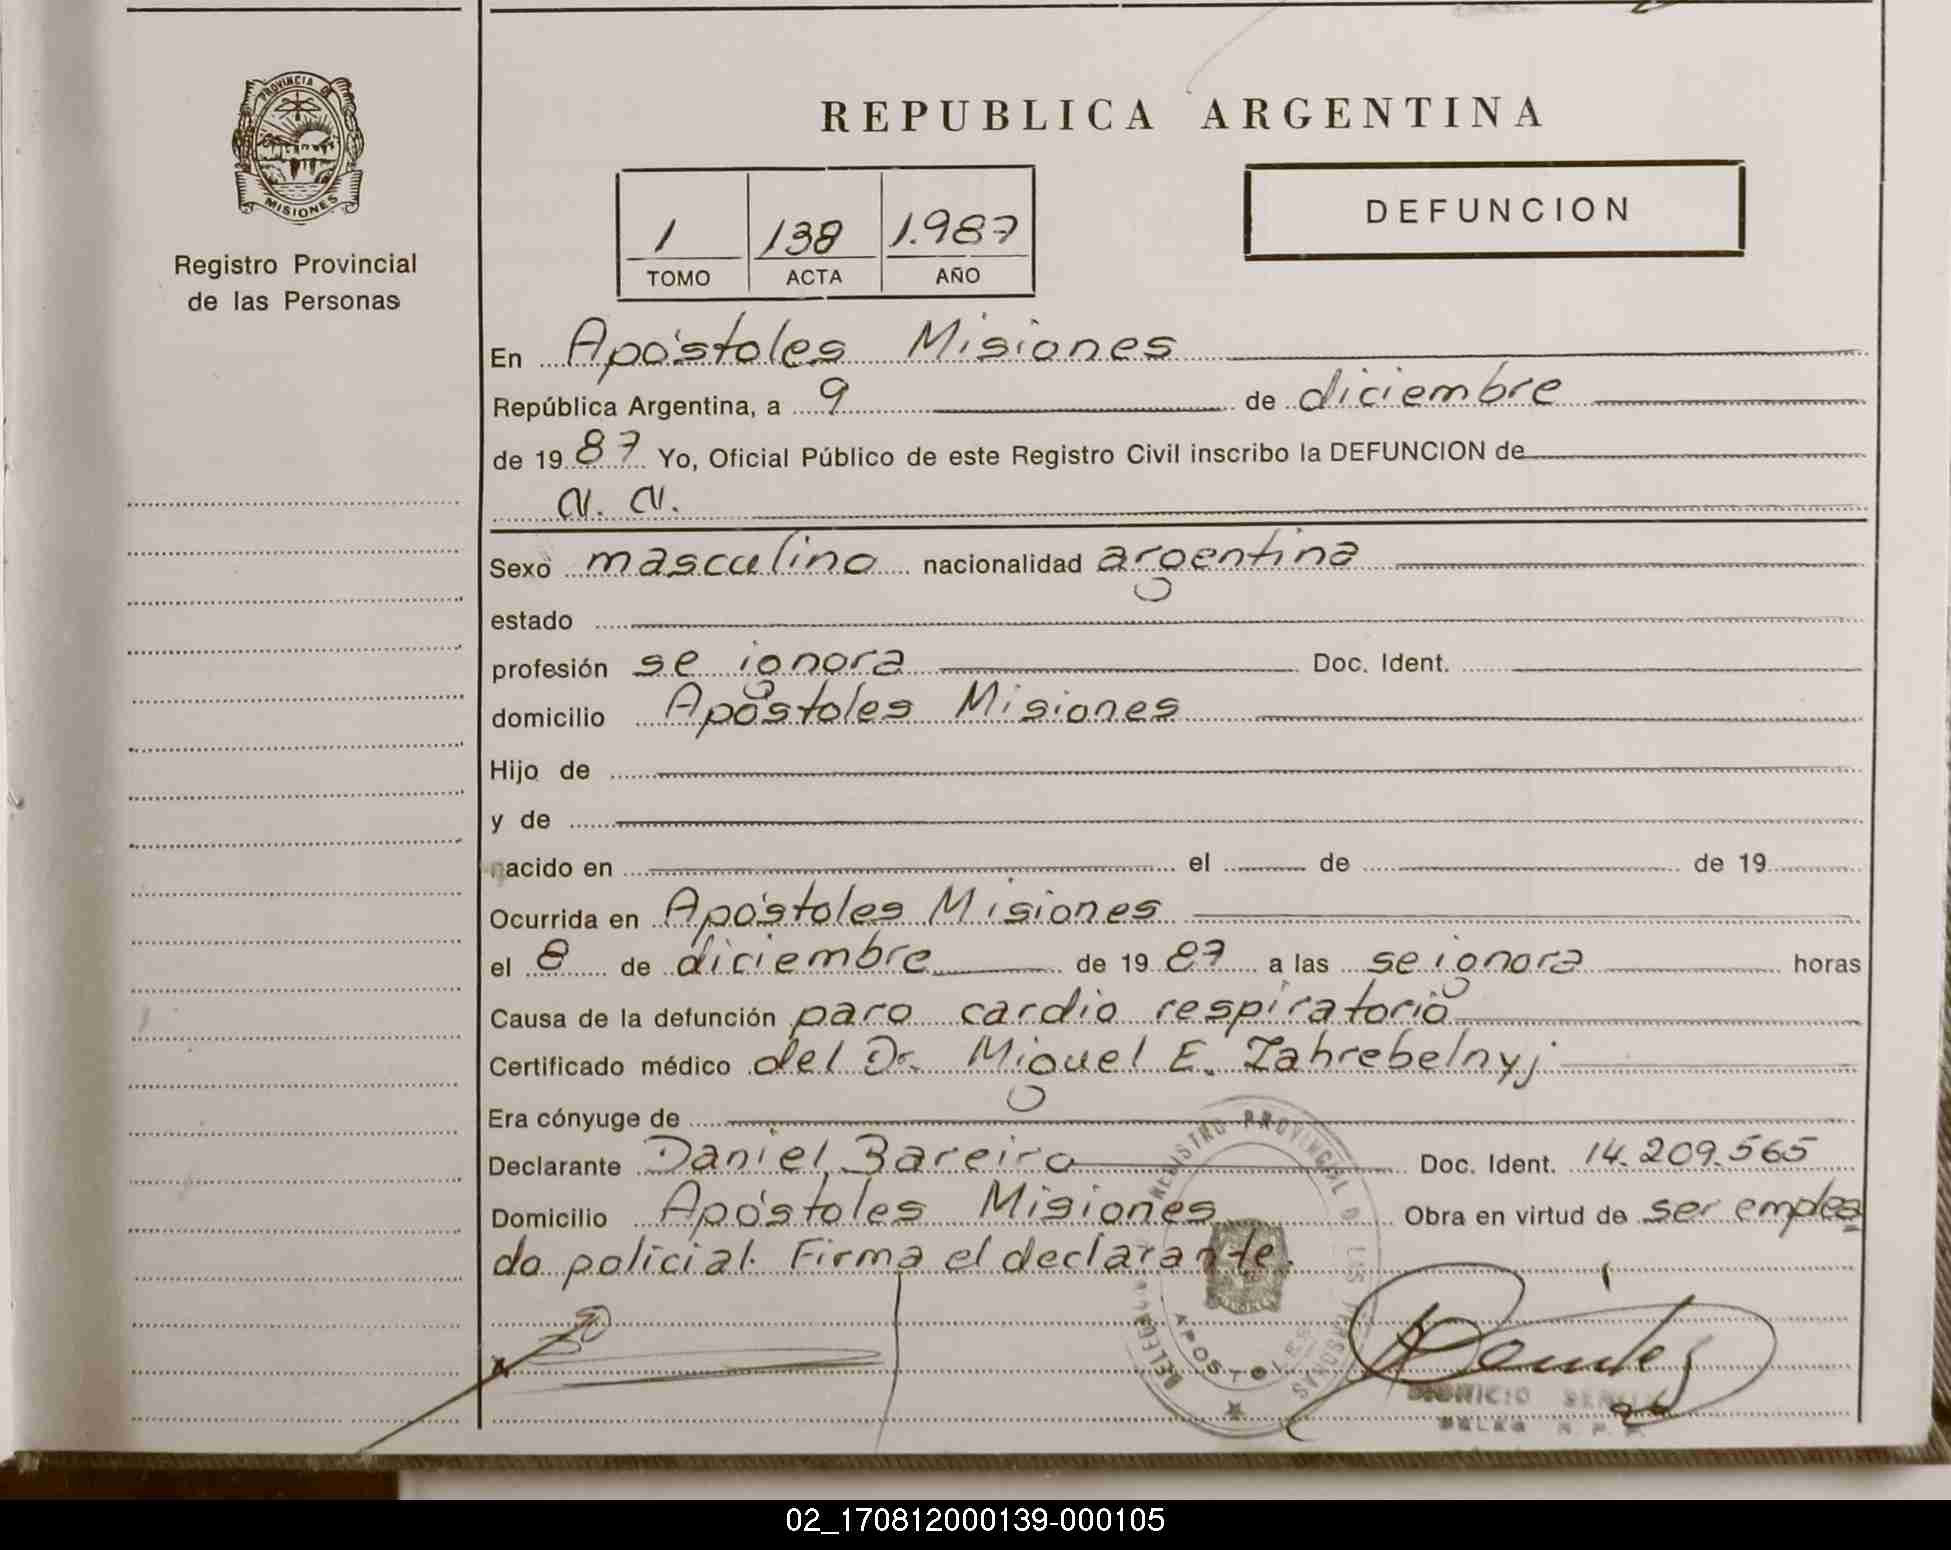 PROVINCIA DE
MISIONES
Registro Provincial
de las Personas
REPUBLICA ARGENTINA
1 138 1.987
TOMO ACTA AÑO
DEFUNCION
En Apóstoles Misiones
República Argentina, a 9 de diciembre
de 1987 Yo, Oficial Público de este Registro Civil inscribo la DEFUNCION de
N. N.
Sexo masculino nacionalidad argentina
estado
profesión se ignora Doc. Ident.
domicilio Apóstoles Misiones
Hijo de
y de
nacido en el de de 19
Ocurrida en Apóstoles Misiones
el 8 de diciembre de 1987 a las se ignora horas
Causa de la defunción paro cardio respiratorio
Certificado médico del Dr. Miguel E. Zahrebelnyj
Era cónyuge de
Declarante Daniel Bareiro Doc. Ident. 14.209.565
Domicilio Apóstoles Misiones Obra en virtud de ser emplea
do policial. Firma el declarante.
REGISTRO PROVINCIAL D LAS PERSONAS
APOSTOLES
02_170812000139-000105